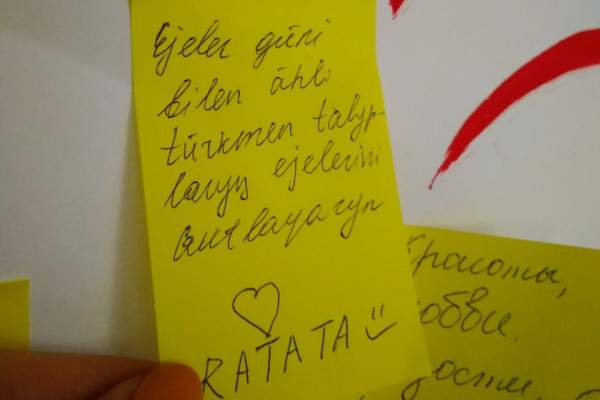 Ejeler güni
bilen ähli
türkmen talyp-
laryň ejelerini
Gutlayaryn
RATATA
красоты,
юбви.